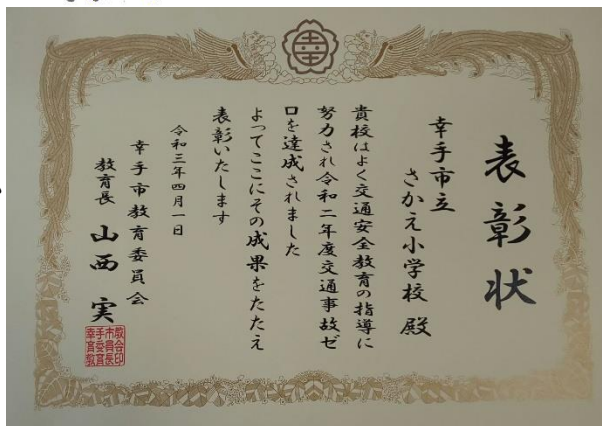 表彰状
幸手市立
さかえ小学校 殿
貴校はよく交通安全教育の指導に
努力され令和二年度交通事故ゼ
ロを達成されました
よってここにその成果をたたえ
表彰いたします
令和三年四月一日
幸手市教育委員会
教育長 山西 実
幸